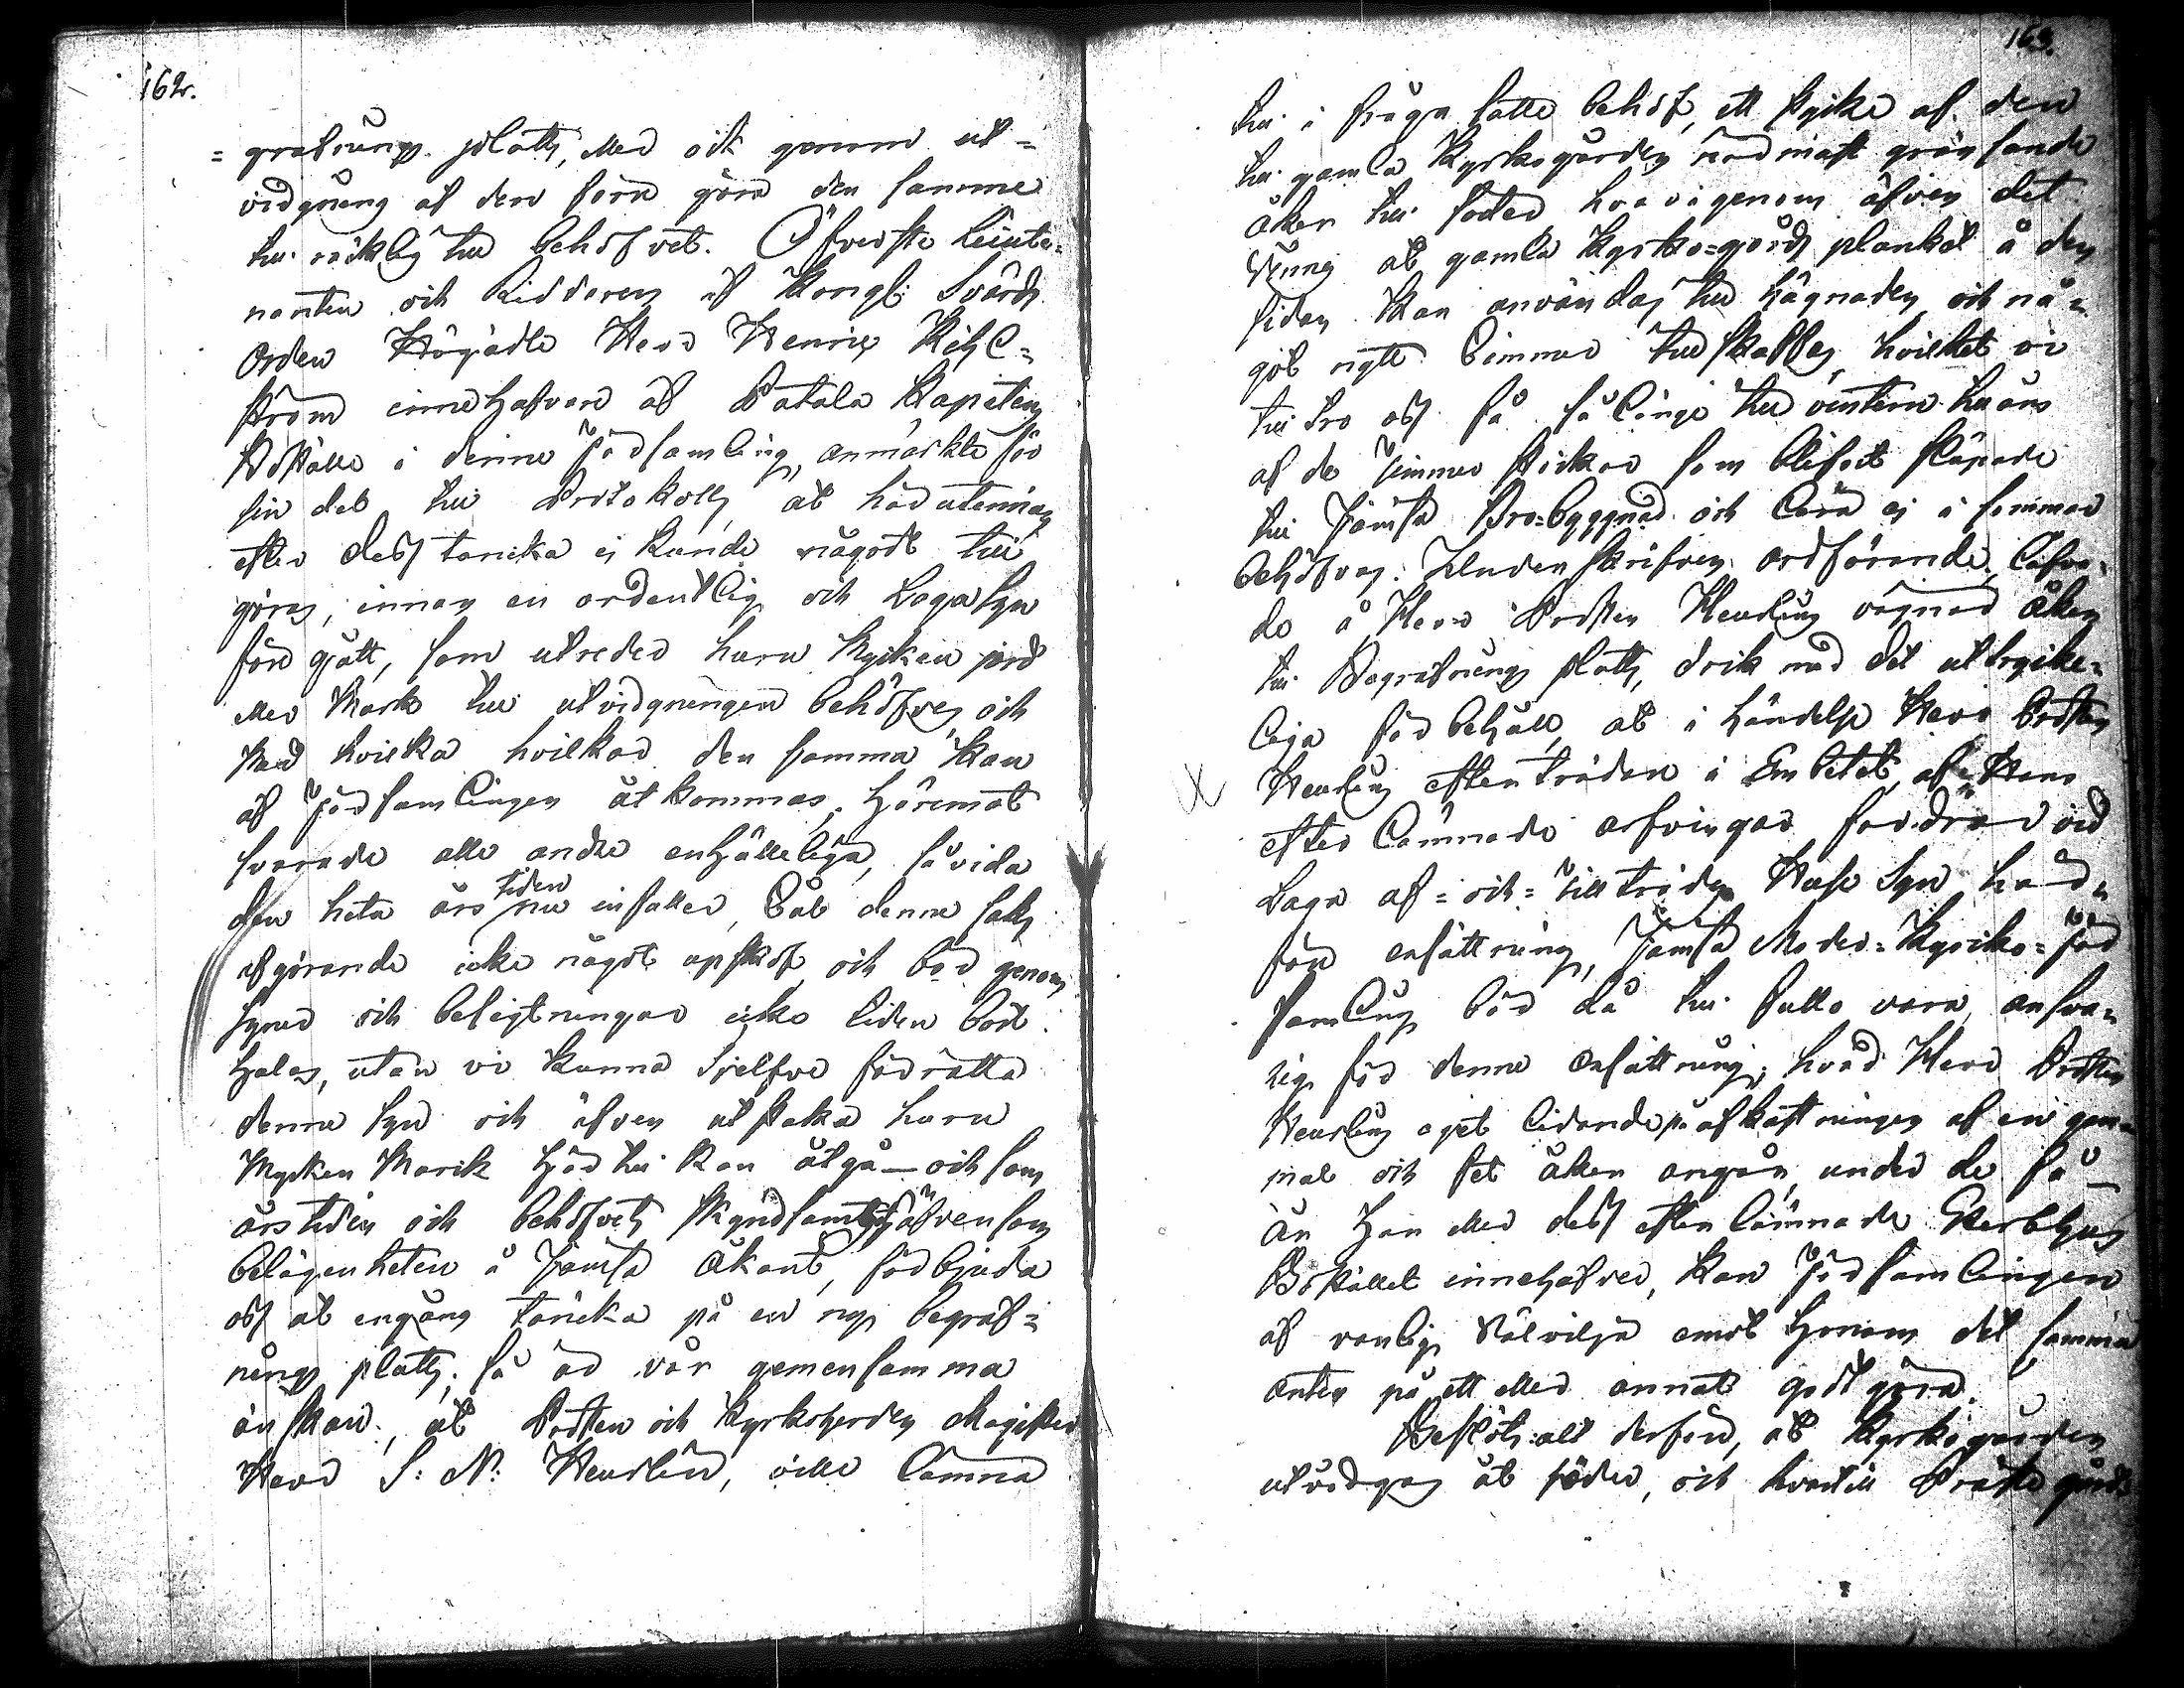 162.
= grafnings platts, eller ock genom ut=
vidgning af den förra göra den samma
till räcklig till behofvet. Öfverste Lieute=
nanten och Riddaren af Kongl: Svärds
Orden Högädle Herr Henric
ström innehafvare af Patala Kapitens
Boställe i denne Församling, anmärkte för
sin del till Protokolls, at härutinnan
efter dess tancka ej kunde något till
göras, innan en ordentelig och Laga Syn
före gått, som utreder huru mycken jord
eller Mark till utvidgningen behöfves, och
med hvilka vilkor den samma kan
af Församlingen åtkommas. Häremot
svarade alle andre enhälleligen, såvida
den heta års tiden nu infaller, tål denne saks
afgörande icke något upskof, och bör genom
syner och besigtningar icke tiden bort
halas, utan vi kunna sjelfve förrätta
denna syn och äfven utstaka huru
mycken Mark här till kan åtgå — och som
årstiden och behofvets skyndsamhet, äfvensom
belägenheten å Jämsä åkant, förbjuda
oss at engång täncka på en ny begraf=
nings platts; så är vår gemensamma
önskan, at Prosten och Kyrkoherden Magister
Herr S: N: Heurlin, ville lämna
163.
till i fråga satte behof, ett stycke af den
till gamla Kyrkogården nedmäst gränsande
åker till söder, hvarigenom äfven det
at gamla Kyrko=gårds plankat å den
sidan kan användas till hägnaden, och nå=
got nytt timmer tillskaffas, hvilket vi
till tro oss få så länge till vintern till äns
af de timmer stockar som blifvit släpade
till Jämsä Bro=byggnad och lära ej i sommar
behöfvas. Undenskrifven ordförande, låfva=
de å Herr Prosten Heurlins vägnar åker
till Begrafnings platts, dock med det uttrycke=
liga förbehåll, at i händelse Herr Prosten
Heurlins efterträdare i Embetet, af Hans
efter lämnade arfvingar fordrar vid
Laga af= och= tillträdes Huse Syn, här=
före ersättning, Jämsä Moder= Kyrko= För
samling bör då till fullo vara ansva=
rig för denne ersättning; hvad Herr Prosten
Heurlins eget lidande på afkastningen af en gam=
mal och fet åker angår, under de få
år Han eller dess efterlämnade Sterbhus
Bostället innehafver, kan Församlingen
af vanlig välvilja emot honom det samma
anten på ett eller annat godtgöra.
Beslöts alt derföre, at Kyrkogården
utvidgas åt söder, och hvartill Prästegårds